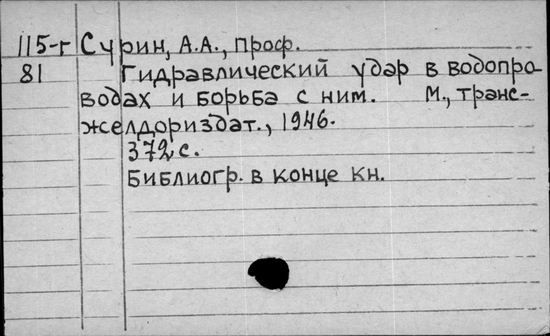 115-г Сурин, А.А., проф.
81 Гидравлический удар в водопро-
водах и борьба с ним. М., транс-
желдориздат., 1946.
372 с.
Библиогр. в конце кн.